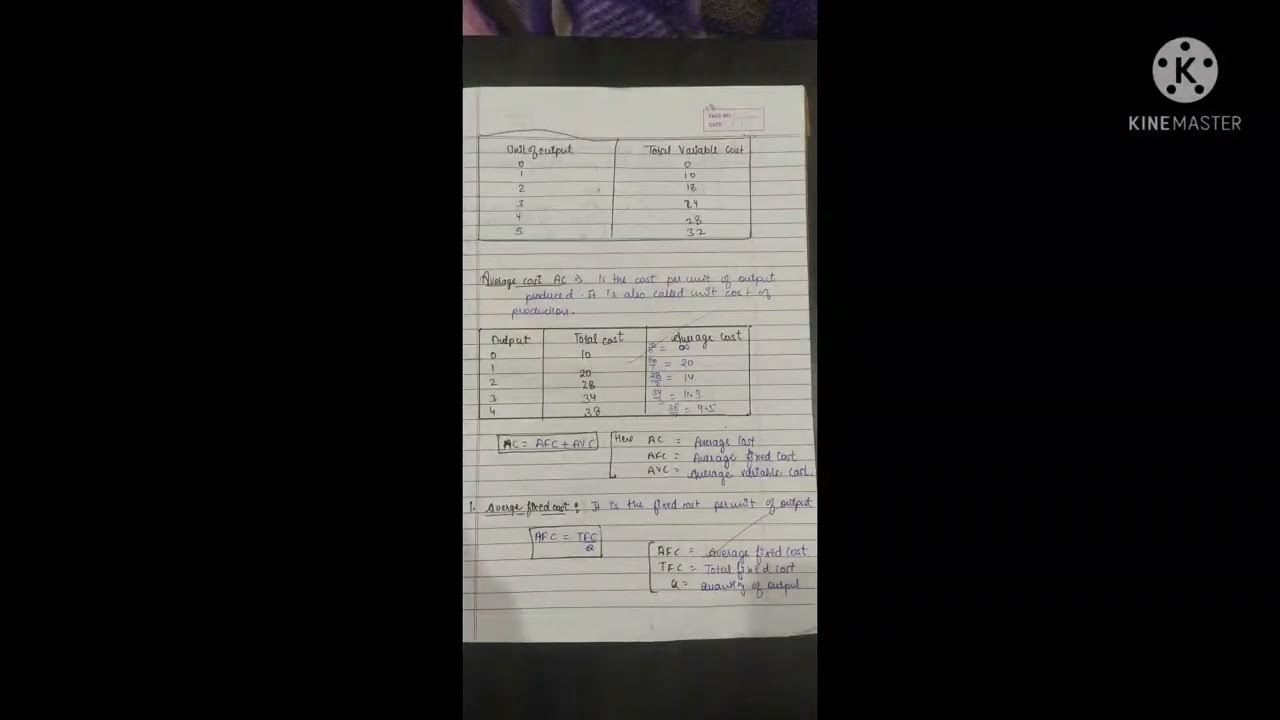 PAGE NO.
DATE
Unit of output Total Variable Cost
0 0
1 10
2 18
3 24
4 28
5 32
Average cost AC ⇒ Is the cost per unit of output
produced. It is also called unit cost of
production.
Output Total cost Average Cost
0 10 10/0 = ∞
1 20 20/1 = 20
2 28 28/2 = 14
3 34 34/3 = 11.3
4 38 38/4 = 9.5
AC = AFC + AVC
Here AC = Average Cost
AFC = Average fixed Cost
AVC = Average variable cost.
1. Averge fixed cost: It is the fixed cost per unit of output
AFC = TFC/Q
AFC = Average fixed Cost
TFC = Total fixed cost
Q = Quantity of output
K
KINEMASTER